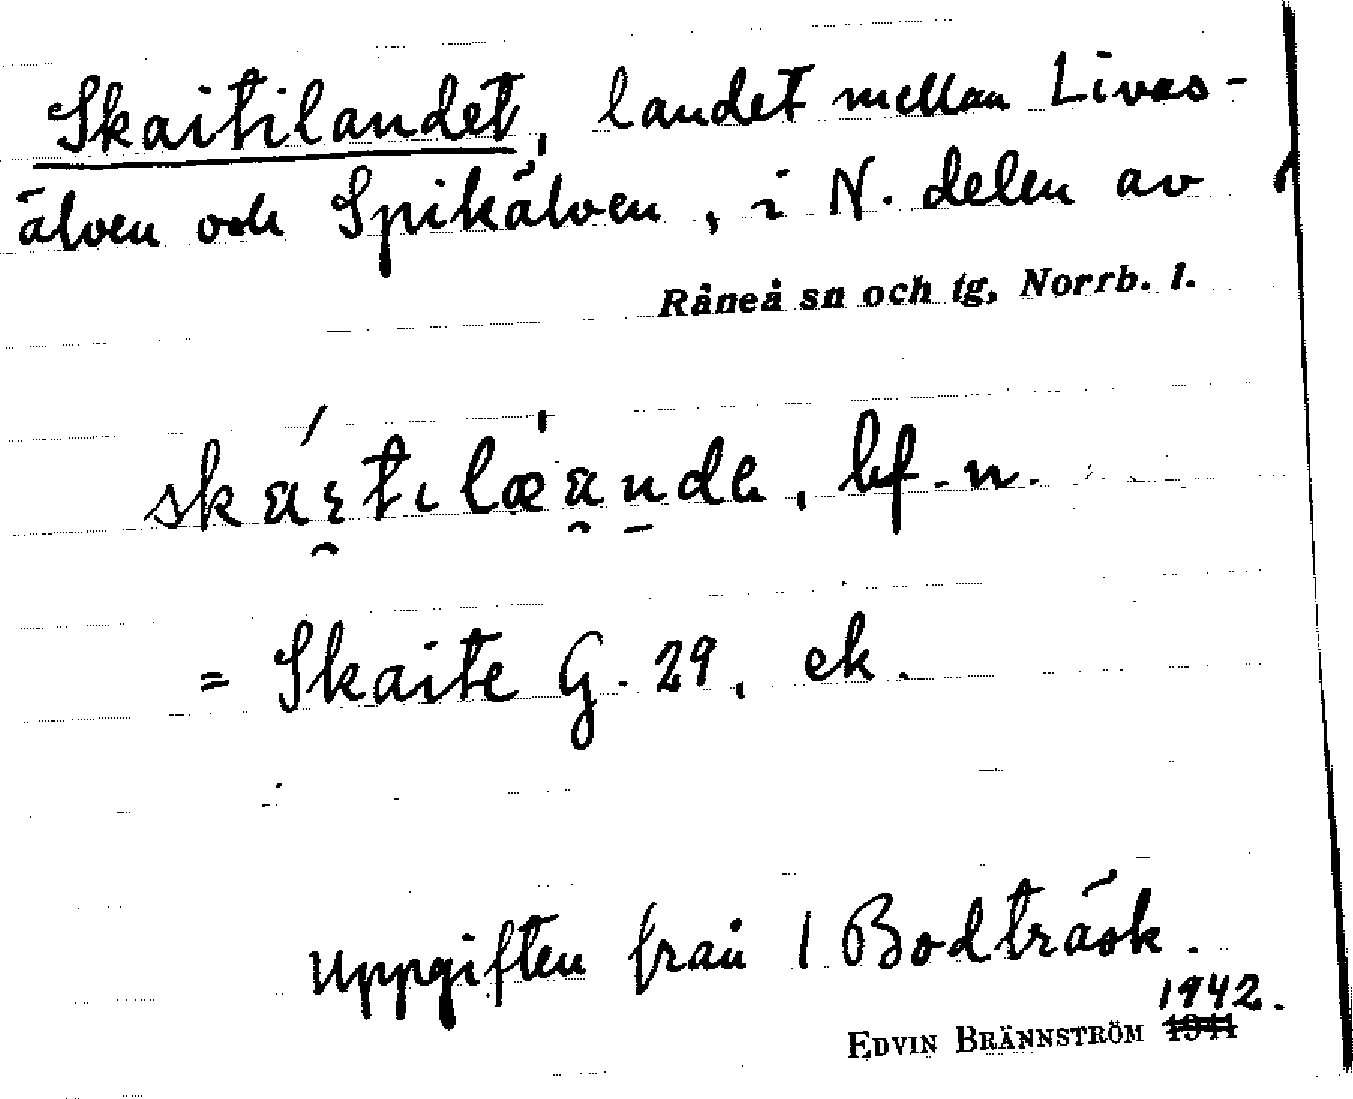 Skaitilandet, landet mellan Livas-
älven och Spikälven, i N. delen av
Råneå sn och tg, Norrb. l.
bf. n.
= Skaite G. 29, ek.
Uppgiften från 1 Bodträsk.
1942.
EDVIN BRÄNNSTRÖM 1941